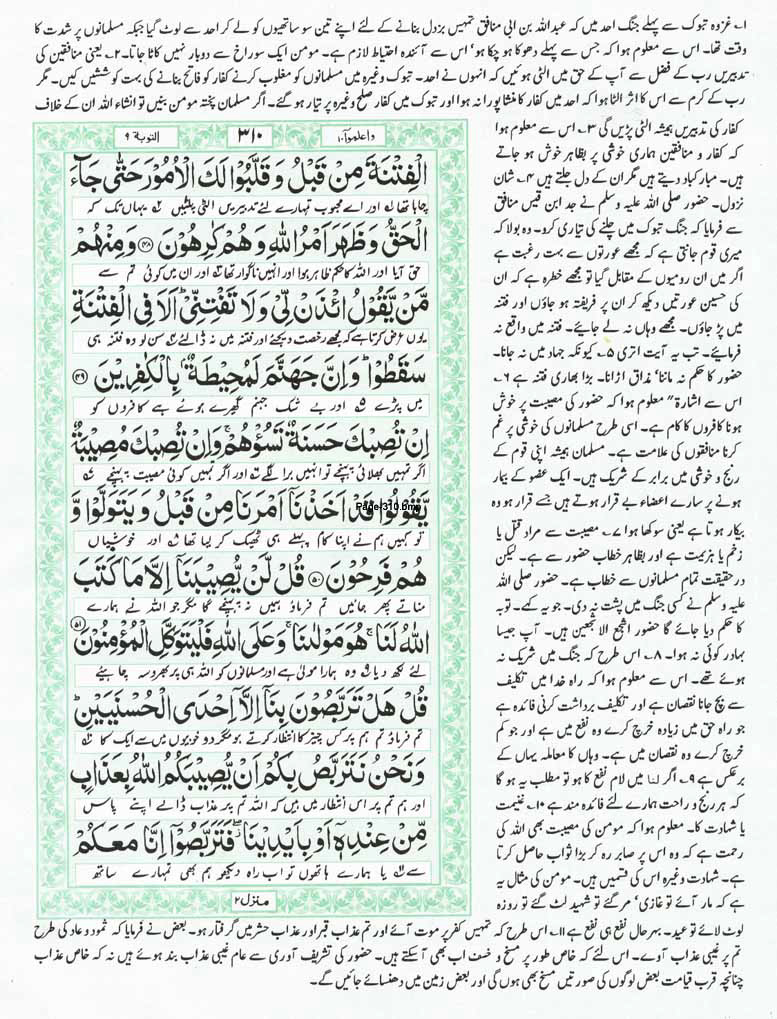 ۱۔ غزوہ تبوک سے پہلے جنگ احد میں کہ عبداللہ بن ابی منافق تمہیں بزدل بنانے کے لئے اپنے تین سو ساتھیوں کو لے کر احد سے لوٹ گیا جبکہ مسلمانوں پر شدت کا
وقت تھا۔ اس سے معلوم ہوا کہ جس سے پہلے دھوکا ہو چکا ہو' اس سے آئندہ احتیاط لازم ہے۔ مومن ایک سوراخ سے دوبار نہیں کاٹا جاتا۔ ۲۔ یعنی منافقین کی
تدبیریں رب کے فضل سے آپ کے حق میں الٹی ہوئیں کہ انہوں نے احد۔ تبوک وغیرہ میں مسلمانوں کو مغلوب کرنے کفار کو فاتح بنانے کی بہت کوششیں کیں۔ مگر
رب کے کرم سے اس کا اثر الٹا ہوا کہ احد میں کفار کا منشا پورا نہ ہوا اور تبوک میں کفار صلح وغیرہ پر تیار ہو گئے۔ اگر مسلمان پختہ مومن بنیں تو انشاء اللہ ان کے خلاف
کفار کی تدبیریں ہمیشہ الٹی پڑیں گی ۳۔ اس سے معلوم ہوا
کہ کفار و منافقین ہماری خوشی پر بظاہر خوش ہو جاتے
ہیں۔ مبارکباد دیتے ہیں مگر ان کے دل جلتے ہیں ۴۔ شان
نزول۔ حضور صلی اللہ علیہ وسلم نے جد ابن قیس منافق
سے فرمایا کہ جنگ تبوک میں چلنے کی تیاری کرو۔ وہ بولا کہ
میری قوم جانتی ہے کہ مجھے عورتوں سے بہت رغبت ہے
اگر میں ان رومیوں کے مقابل گیا تو مجھے خطرہ ہے کہ ان
کی حسین عورتیں دیکھ کر ان پر فریفتہ ہو جاؤں اور فتنہ
میں پڑ جاؤں۔ مجھے وہاں نہ لے جایئے۔ فتنہ میں واقع نہ
فرمایئے۔ تب یہ آیت اتری ۵۔ کیونکہ جہاد میں نہ جانا۔
حضور کا حکم نہ ماننا' مذاق اڑانا۔ بڑا بھاری فتنہ ہے ۶۔
اس سے اشارۃً معلوم ہوا کہ حضور کی مصیبت پر خوش
ہونا کافروں کا کام ہے۔ اسی طرح مسلمانوں کی خوشی پر غم
کرنا منافقوں کی علامت ہے۔ مسلمان ہمیشہ اپنی قوم کے
رنج و خوشی میں برابر کے شریک ہیں۔ ایک عضو کے بیمار
ہونے پر سارے اعضاء بے قرار ہوتے ہیں جسے قرار ہو وہ
بیکار ہوتا ہے یعنی سوکھا ہوا ۷۔ مصیبت سے مراد قتل یا
زخم یا ہزیمت ہے اور بظاہر خطاب حضور سے ہے۔ لیکن
درحقیقت تمام مسلمانوں سے خطاب ہے۔ حضور صلی اللہ
علیہ وسلم نے کسی جنگ میں پشت نہ دی۔ جو یہ کہے۔ توبہ
کا حکم دیا جائے گا حضور اشجع الاشجعین ہیں۔ آپ جیسا
بہادر کوئی نہ ہوا۔ ۸۔ اس طرح کہ جنگ میں شریک نہ
ہوئے تھے۔ اس سے معلوم ہوا کہ راہ خدا میں تکلیف
سے بچ جانا نقصان ہے اور تکلیف برداشت کرنی فائدہ ہے
جو راہ حق میں زیادہ خرچ کرے وہ نفع میں ہے اور جو کم
خرچ کرے وہ نقصان میں ہے۔ وہاں کا معاملہ یہاں کے
برعکس ہے ۹۔ اگر لنا میں لام نفع کا ہو تو مطلب یہ ہو گا
کہ ہر رنج و راحت ہمارے لئے فائدہ مند ہے ۱۰۔ غنیمت
یا شہادت کا۔ معلوم ہوا کہ مومن کی مصیبت بھی اللہ کی
رحمت ہے کہ وہ اس پر صابر رہ کر بڑا ثواب حاصل کرتا
ہے۔ شہادت وغیرہ اس کی قسمیں ہیں۔ مومن کی مثال یہ
ہے کہ مار آئے تو غازی' مر گئے تو شہید لٹ گئے تو روزہ
واعلموا ۱۰
۳۱۰
التوبة ۹
الْفِتْنَةَ مِنْ قَبْلُ وَقَلَّبُوْا لَكَ الْاُمُوْرَ حَتّٰى جَآءَ
چاہا تھا اور اے محبوب تمہارے لئے تدبیریں الٹی پلٹیں یہاں تک کہ
الْحَقُّ وَظَهَرَ اَمْرُ اللّٰهِ وَهُمْ كٰرِهُوْنَ ﴿۴۸﴾ وَمِنْهُمْ
حق آیا اور اللہ کا حکم ظاہر ہوا اور انہیں ناگوار تھا اور ان میں کوئی تم سے
مَّنْ يَّقُوْلُ ائْذَنْ لِّىْ وَلَا تَفْتِنِّىْ ؕ اَلَا فِى الْفِتْنَةِ
یوں عرض کرتا ہے کہ مجھے رخصت دیجئے اور فتنہ میں نہ ڈالئے سن لو وہ فتنہ ہی
سَقَطُوْا ؕ وَاِنَّ جَهَنَّمَ لَمُحِيْطَةٌۢ بِالْكٰفِرِيْنَ ﴿۴۹﴾
میں پڑے اور بے شک جہنم گھیرے ہوئے ہے کافروں کو
اِنْ تُصِبْكَ حَسَنَةٌ تَسُؤْهُمْ ۚ وَاِنْ تُصِبْكَ مُصِيْبَةٌ
اگر تمہیں بھلائی پہنچے تو انہیں برا لگے اور اگر تمہیں کوئی مصیبت پہنچے
يَّقُوْلُوْا قَدْ اَخَذْنَاۤ اَمْرَنَا مِنْ قَبْلُ وَيَتَوَلَّوْا وَّ
Page-310.bmp
تو کہیں ہم نے اپنا کام پہلے ہی ٹھیک کر لیا تھا اور خوشیاں
هُمْ فَرِحُوْنَ ﴿۵۰﴾ قُلْ لَّنْ يُّصِيْبَنَاۤ اِلَّا مَا كَتَبَ
مناتے پھر جائیں تم فرماؤ ہمیں نہ پہنچے گا مگر جو اللہ نے ہمارے
اللّٰهُ لَنَا ۚ هُوَ مَوْلٰىنَا ۚ وَعَلَى اللّٰهِ فَلْيَتَوَكَّلِ الْمُؤْمِنُوْنَ ﴿۵۱﴾
لئے لکھ دیا وہ ہمارا مولیٰ ہے اور مسلمانوں کو اللہ ہی پر بھروسہ چاہیئے
قُلْ هَلْ تَرَبَّصُوْنَ بِنَاۤ اِلَّاۤ اِحْدَى الْحُسْنَيَيْنِ ؕ
تم فرماؤ تم ہم پر کس چیز کا انتظار کرتے ہو مگر دو خوبیوں میں سے ایک کا
وَنَحْنُ نَتَرَبَّصُ بِكُمْ اَنْ يُّصِيْبَكُمُ اللّٰهُ بِعَذَابٍ
اور ہم تم پر اس انتظار میں ہیں کہ اللہ تم پر عذاب ڈالے اپنے پاس
مِّنْ عِنْدِهٖۤ اَوْ بِاَيْدِيْنَا ۖ فَتَرَبَّصُوْۤا اِنَّا مَعَكُمْ
سے یا ہمارے ہاتھوں تو اب راہ دیکھو ہم بھی تمہارے ساتھ
منزل ۲
لوٹ لائے تو عید۔ بہرحال نفع ہی نفع ہے ۱۱۔ اس طرح کہ تمہیں کفر پر موت آئے اور تم عذاب قبر اور عذاب حشر میں گرفتار ہو۔ بعض نے فرمایا کہ ثمود و عاد کی طرح
تم پر غیبی عذاب آوے۔ اس لئے کہ خاص طور پر مسخ و خسف اب بھی آسکتے ہیں۔ حضور کی تشریف آوری سے عام غیبی عذاب بند ہوئے ہیں نہ کہ خاص عذاب
چنانچہ قرب قیامت بعض لوگوں کی صورتیں مسخ بھی ہوں گی اور بعض زمین میں دھنسائے جائیں گے۔